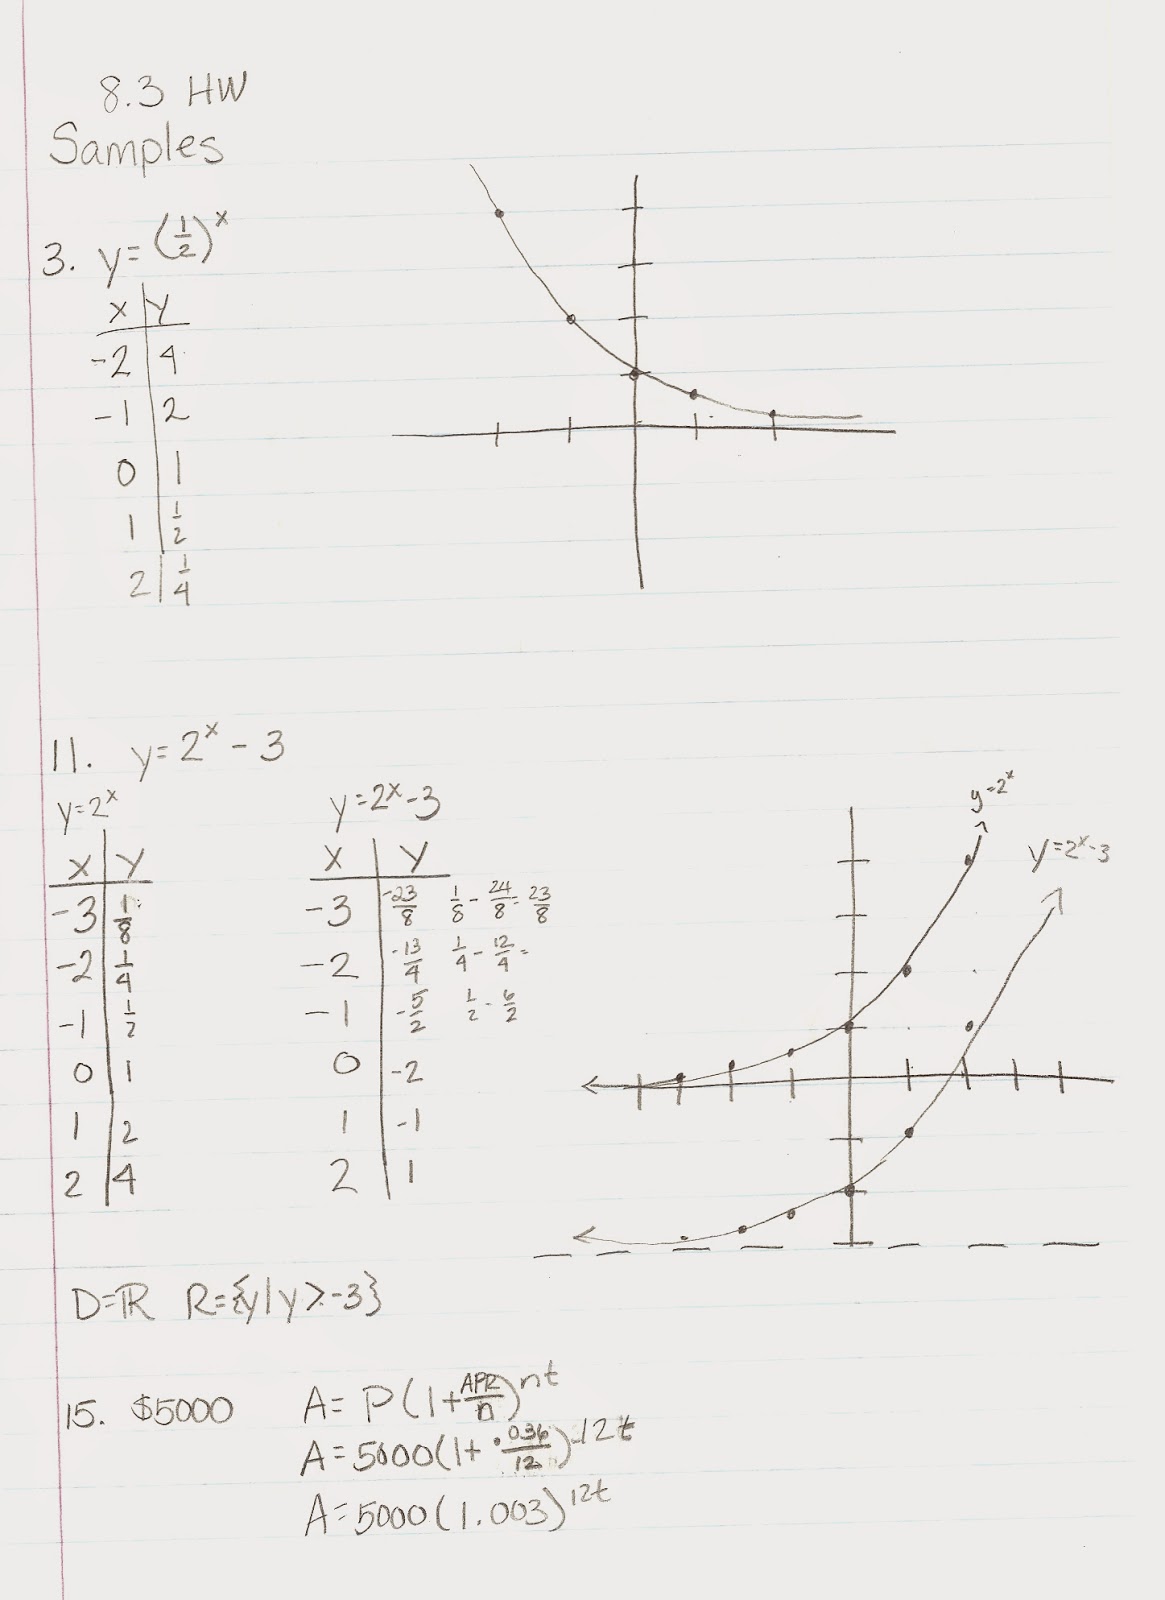 8.3 HW
Samples
3. y=(1/2)^x
x | y
-2 | 4
-1 | 2
0 | 1
1 | 1/2
2 | 1/4
11. y=2^x - 3
y=2^x
x | y
-3 | 1/8
-2 | 1/4
-1 | 1/2
0 | 1
1 | 2
2 | 4
y=2^x-3
x | y
-3 | -23/8 1/8 - 24/8 = 23/8
-2 | -13/4 1/4 - 12/4 =
-1 | -5/2 1/2 - 6/2
0 | -2
1 | -1
2 | 1
y=2^x
y=2^x-3
D=ℝ R={y|y>-3}
15. $5000 A= P(1+APR/n)^nt
A=5000(1+.036/12)^12t
A=5000(1.003)^12t